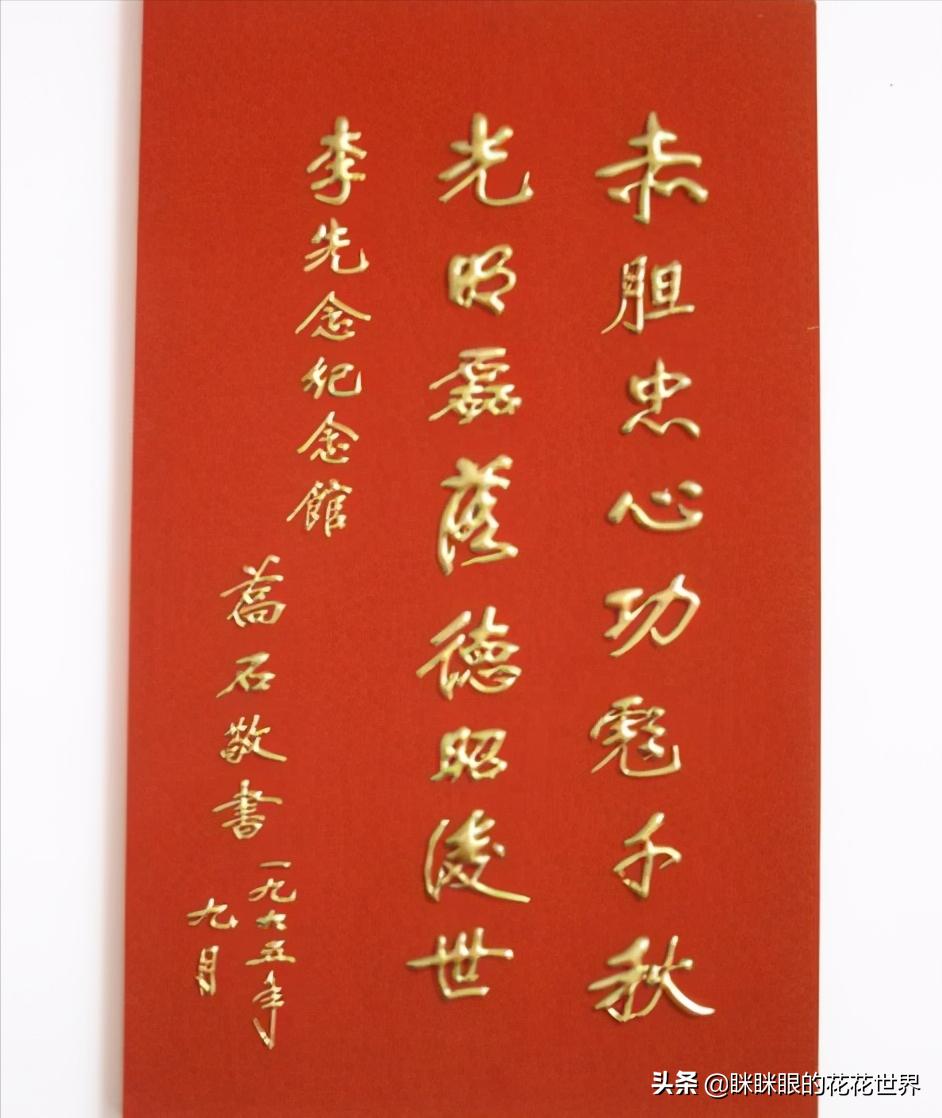 赤胆忠心功彪千秋
光明磊落德昭後世
李先念紀念館
喬石敬書
一九九五年
九月
头条 @眯眯眼的花花世界